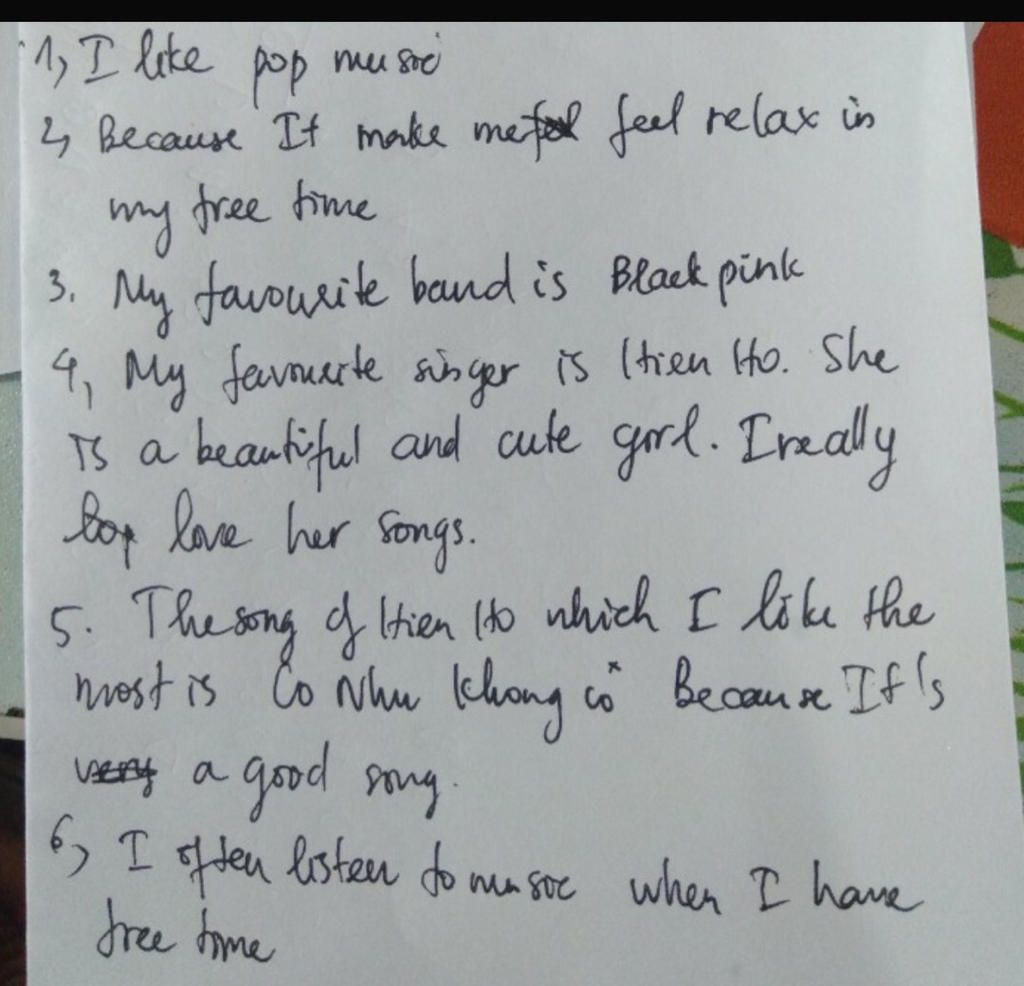 1, I like pop music
2, Because It make me feel relax in
my free time
3. My favourite band is Black pink
4, My favourite singer is Hien Ho. She
is a beautiful and cute girl. I really
love her songs.
5. The song of Hien Ho which I like the
most is Co Nhu khong co" Because It's
very a good song.
6, I often listen to music when I have
free time